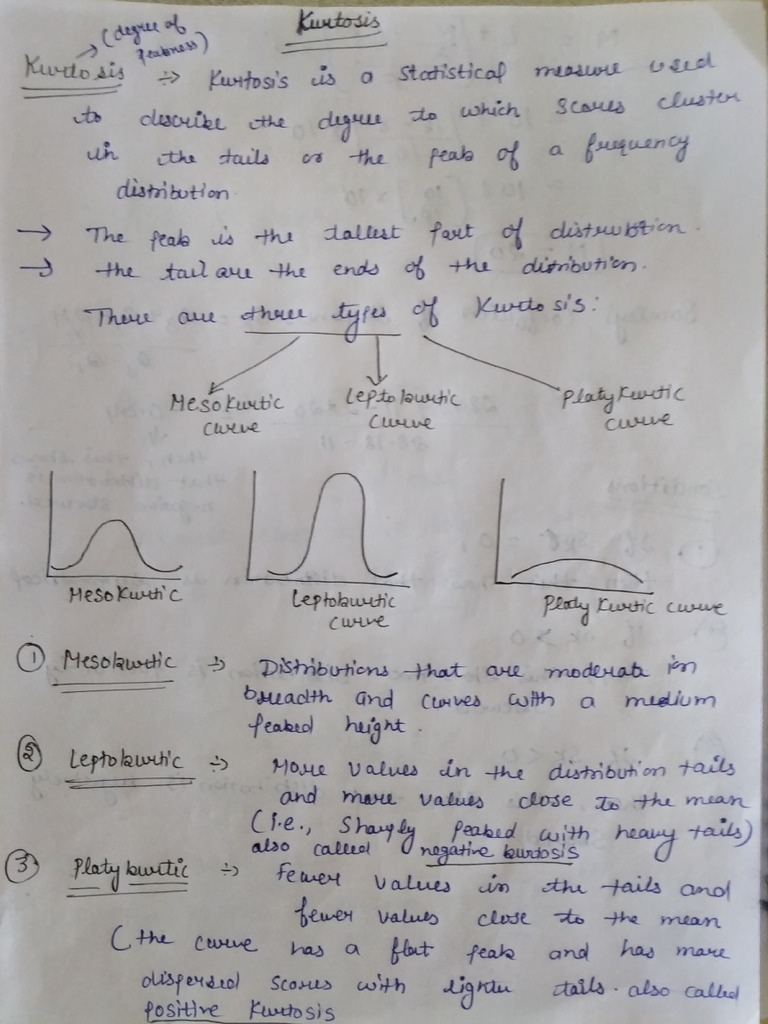 Kurtosis
(degree of
Peakness)
Kurtosis ÷> Kurtosis is a statistical measure used
to describe the degree to which scores cluster
in the tails or the peak of a frequency
distribution.
→ The peak is the tallest part of distribution.
→ the tail are the ends of the distribution.
There are three types of Kurtosis:
Mesokurtic
curve
Leptokurtic
curve
Platykurtic
curve
Mesokurtic
Leptokurtic
curve
Platykurtic curve
① Mesokurtic ÷> Distributions that are moderate in
breadth and curves with a medium
peaked height.
② Leptokurtic ÷> More values in the distribution tails
and more values close to the mean
(i.e., Sharply peaked with heavy tails)
also called negative kurtosis
③ Platykurtic ÷> Fewer values in the tails and
fewer values close to the mean
(the curve has a flat peak and has more
dispersed scores with lighter tails. also called
positive Kurtosis